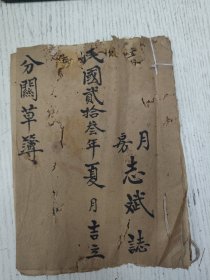 月嵩志斌誌
民國貳拾叁年夏月吉立
分關草簿